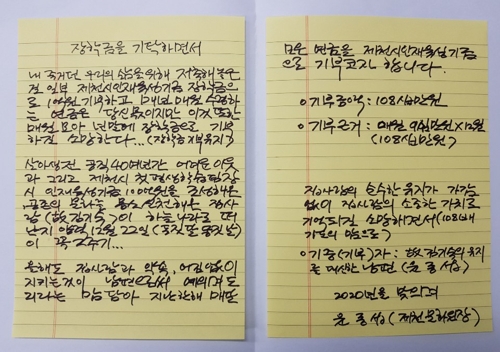 장학금을 기탁하면서
내 죽거던 우리의 삶을 위해 저축해놓은
것 일부 제천시인재육성기금 장학금으
로 1억원 기부하고 1개월 매월 수령하
는 연금은 당신 몫이지만 이것 또한
매월 모아 년말에 장학금으로 기부
하길 소망한다...(장학증서 유지)
살아생전 공직 40여년간 어려운 이웃
과 그리고 제천시 첫 평생학습팀장
시 인재육성기금 100억원을 조성해
사
람(故김기숙)이 하늘나라로 떠
난지 양력 12월 22일(음력 동짓날)
이 꼭 2주기...
올해도 집사람과 약속, 어김없이
지키는 것이 남편으로서 예의며 도
리라는 마음 담아 지난 한해 매달
모은 연금을 제천시인재육성기금
으로 기부코자 합니다.
○기부금액: 108십만원
○기부근거: 매월 9십만원X12월
(108십만원)
집사람의 순수한 유지가 가감
없이 집사람의 소중한 가치로
기억되길 소망하면서(108배
의 마음으로)
○기증(기부)자: 故김기숙의 유지
를 대신한 남편(윤종섭)
2020년을 맞으며
윤종섭(제천문화원장)